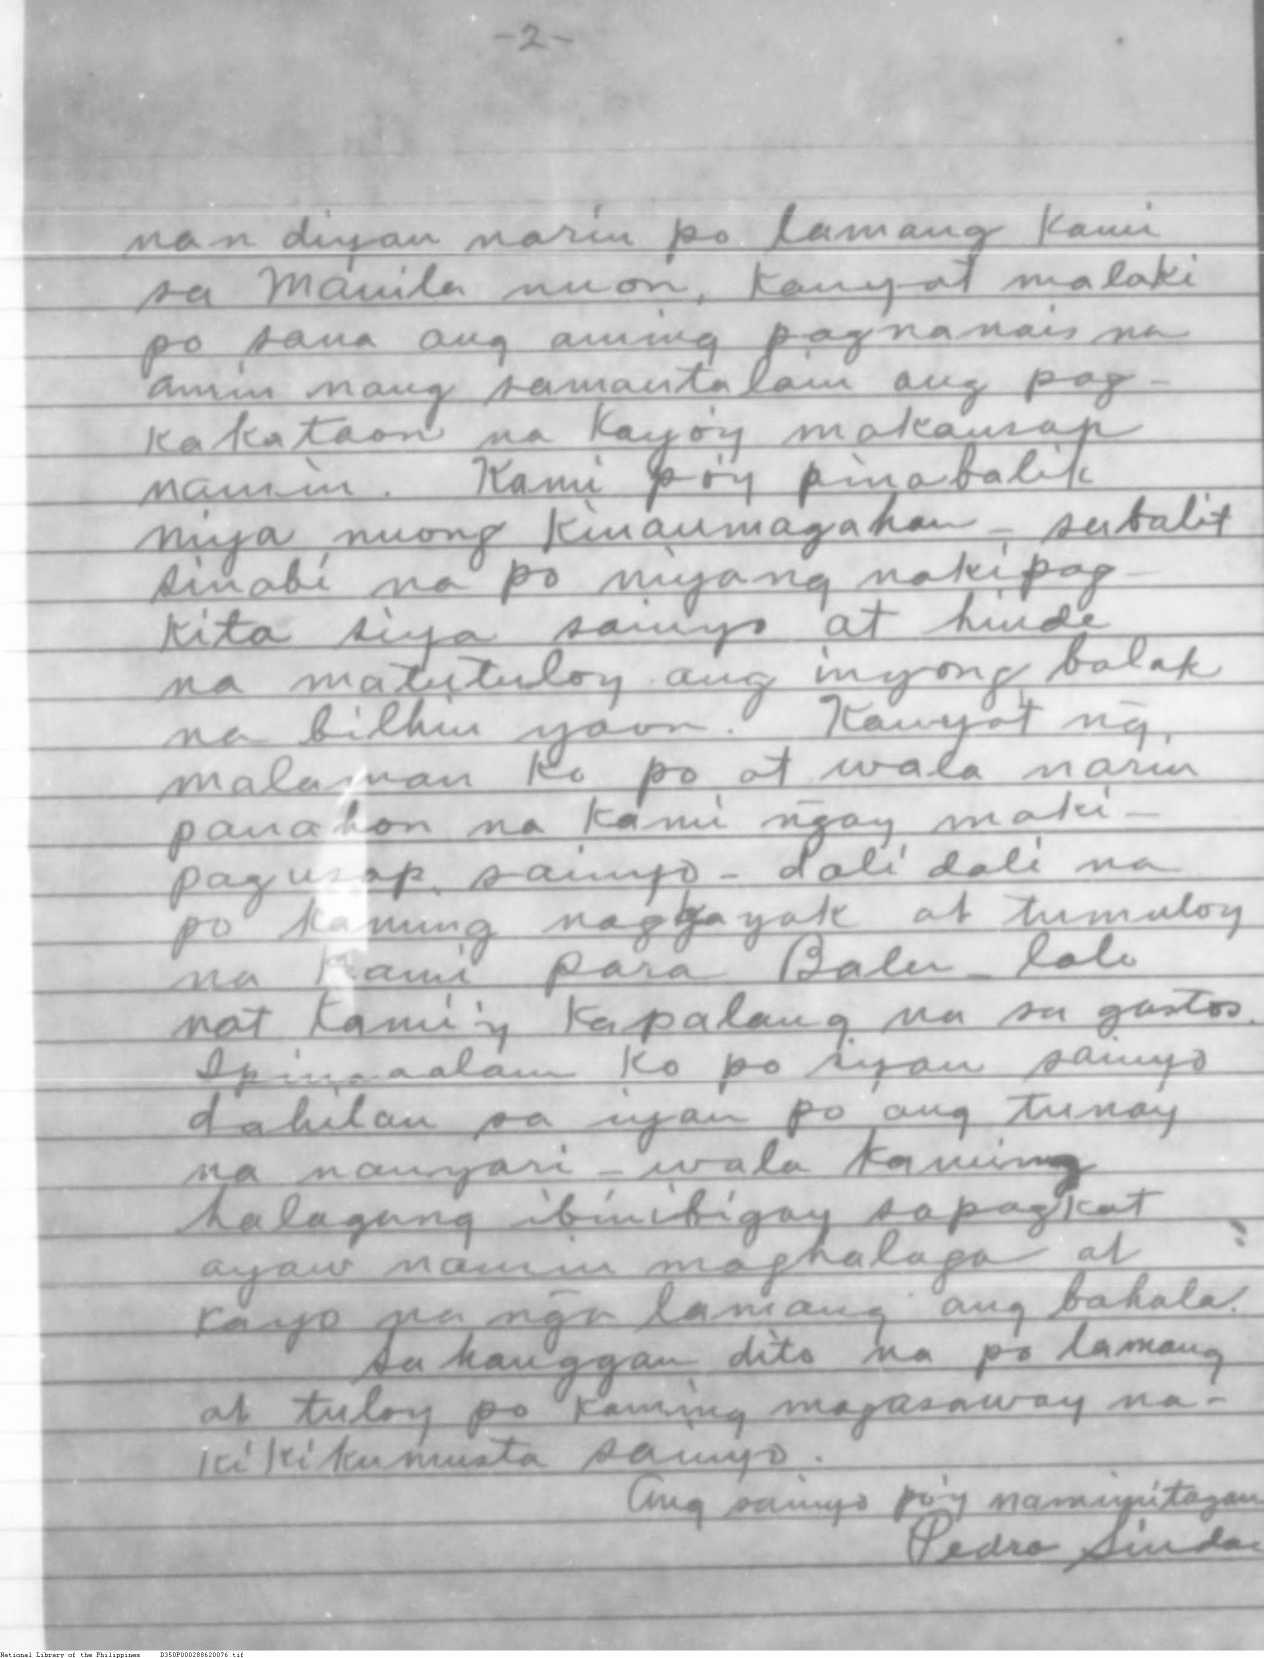 -2-
nan diyan narin po lamang kami
sa Manila nuon, kanyat malaki
po sana ang aming pagnanais na
amin nang samantalain ang pag-
kakataon na kayo'y makausap
namin. Kami po'y pinabalik
niya nuong kinaumagahan - subalit
sinabi na po niyang nakipag-
kita siya sainyo at hinde
na matutuloy ang inyong balak
na bilhin yaon. Kanya't ng,
malaman ko po at wala narin
panahon na kami ngay maki-
pagusap sainyo - dali dali na
po kaming naggayak at tumuloy
na kami para Baler - lalo
nat kami'y kapalang na sa gastos.
Ipinaaalam ko po iyan sainyo
dahilan sa iyan po ang tunay
na nanyari - wala kaming
halagang ibinibigay sapagkat
ayaw namin maghalaga at
kayo na nga lamang ang bahala.
Sa hanggan dito na po lamang
at tuloy po kaming magasaway na-
kikikumusta sainyo.
Ang sainyo po'y namimitagan
Pedro
National Library of the Philippines D350P000288620076.tif